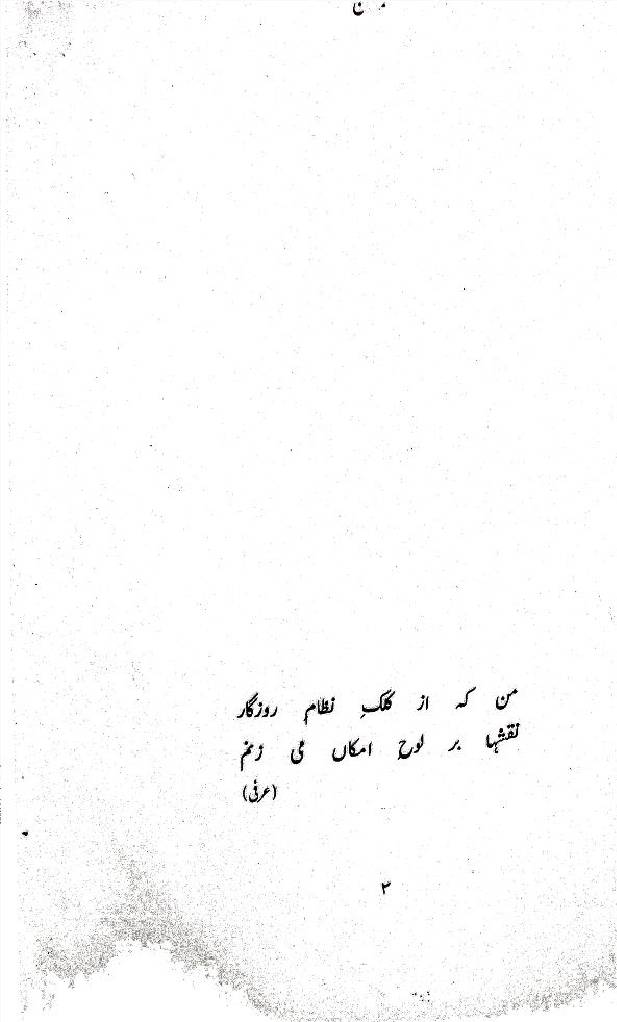 من کہ از کلکِ نظام روزگار
نقشہا بر لوح امکاں می زنم
(عرفی)
۳